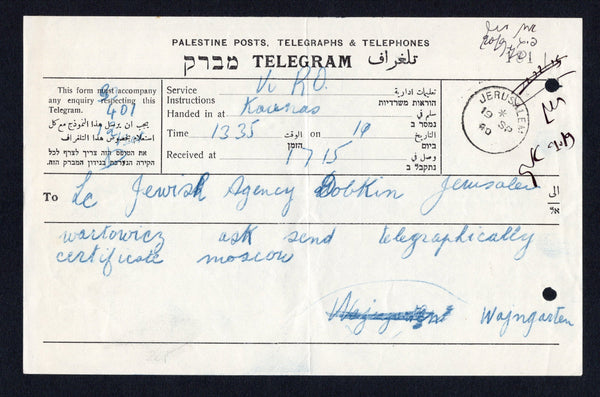 PALESTINE POSTS, TELEGRAPHS & TELEPHONES
מברק TELEGRAM تلغراف
This form must accompany
any enquiry respecting this
Telegram.
401
يجب ان يرفق هذا النموذج مع كل
استعلام بخصوص هذا التلغراف
את הטופס הזה צריך לצרף לכל
חקירה הנערכת בנידון המברק הזה.
Service
Instructions
Via R.O.
تعليمات ادارية
הוראות משרדיות
Handed in at
Kaunas
سلم في
נמסר ב
Time 1335 الوقت
הזמן
on 19 التاريخ
ביום
Received at 1715
وصل في
נתקבל ב
JERUSALEM
19 SP
40
To Lc Jewish Agency Dobkin Jerusalem الى
אל
wartowicz ask send telegraphically
certificate moscow
Wajngarten